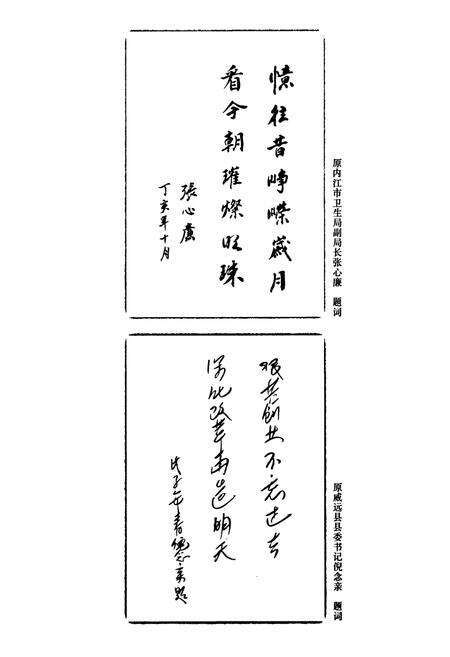 憶往昔崢嶸歲月
看今朝璀燦明珠
張心廉
丁亥年十月
原内江市卫生局副局长张心廉 题词
艰苦創业不忘过去
深化改革再造明天
戊子年春倪念亲题
原威远县县委书记倪念亲 题词